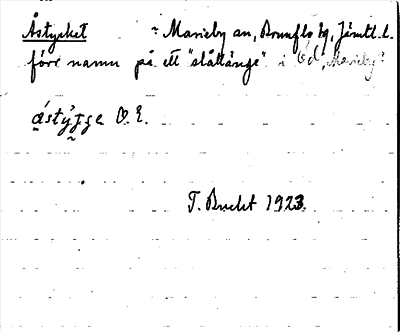 Åstycket ~ Marieby sn, Brunflo tg, Jämtl. l.
före namn på ett "slåttänge" i Öd, Marieby?
O. E.
T. Bucht 1923.